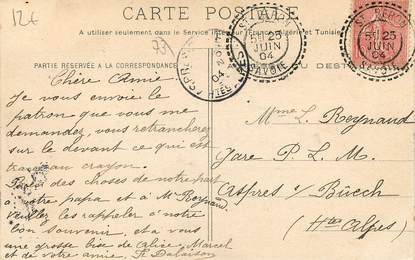 12€
CARTE POSTALE
A utiliser seulement dans le Service Intérieur (France, Algérie et Tunisie).
73
PARTIE RÉSERVÉE A LA CORRESPONDANCE
DEST
5E 25
JUIN
04
SAVOIE
5E 25
JUIN
04
SAVOIE
04
Chère Amie
Je vous envoie le
patron que vous me
demandez, vous retrancherez
sur le devant ce qui est
tracé au crayon.
des choses de notre part
à votre papa et à Mr Reynaud
veuillez les rappeler à notre
bon souvenir, et a vous
une grosse bise de Alice, Marcel
et de votre amie. Dalaison
Mme L. Reynaud
Gare P. L. M.
Aspres s/ Büech
(Htes Alpes)